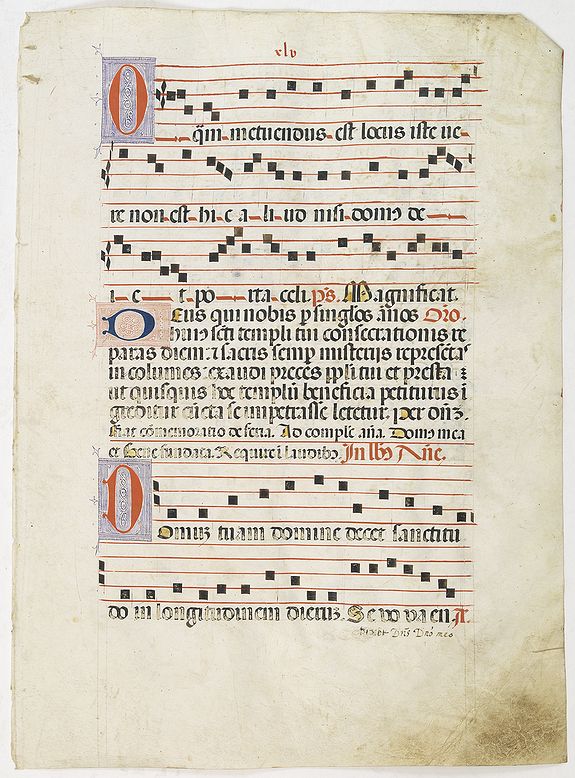 xlv
O q̄m metuendus est locus iste ve
re non est hic aliud nisi domꝰ de
i et porta celi. p̄s. Magnificat.
Deus qui nobis p singlos annos Oro.
huiꝰ sc̄ti templi tui consecrationis re
paras diem: ⁊ sacris semp misterijs representas
incolumes: exaudi preces ppl̄i tui et presta:
ut quisquis hoc templū beneficia petiturus i
greditur cūcta se impetrasse letetur. per dn̄ȝ.
fiat cōmemoratio de feria. Ad comple. an̄a. Domꝰ mea
et bene fundata. Require ī laudibꝰ. In
Domuȝ tuam domine decet sanctitu
do in longitudinem dieruȝ. Seuouaen.